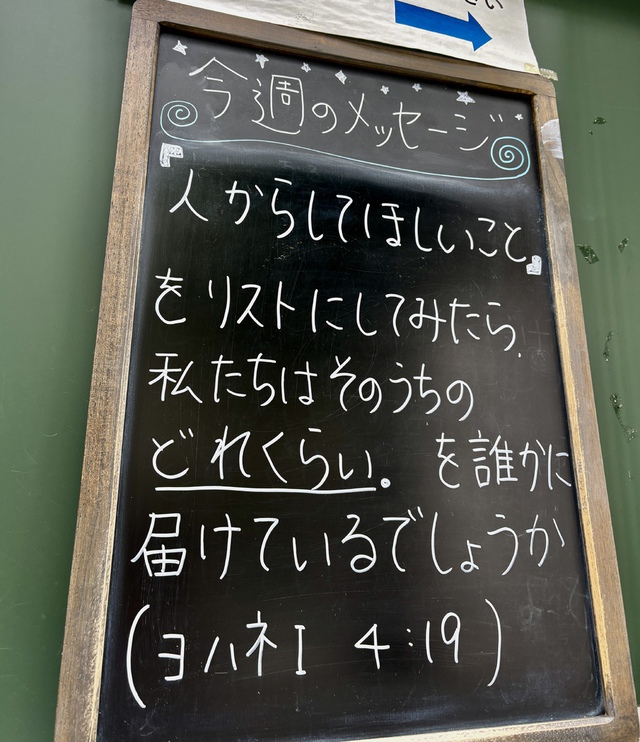 さい
今週のメッセージ
『人からしてほしいこと』
をリストにしてみたら、
私たちはそのうちの
どれくらい。を誰かに
届けているでしょうか
(ヨハネI 4:19)